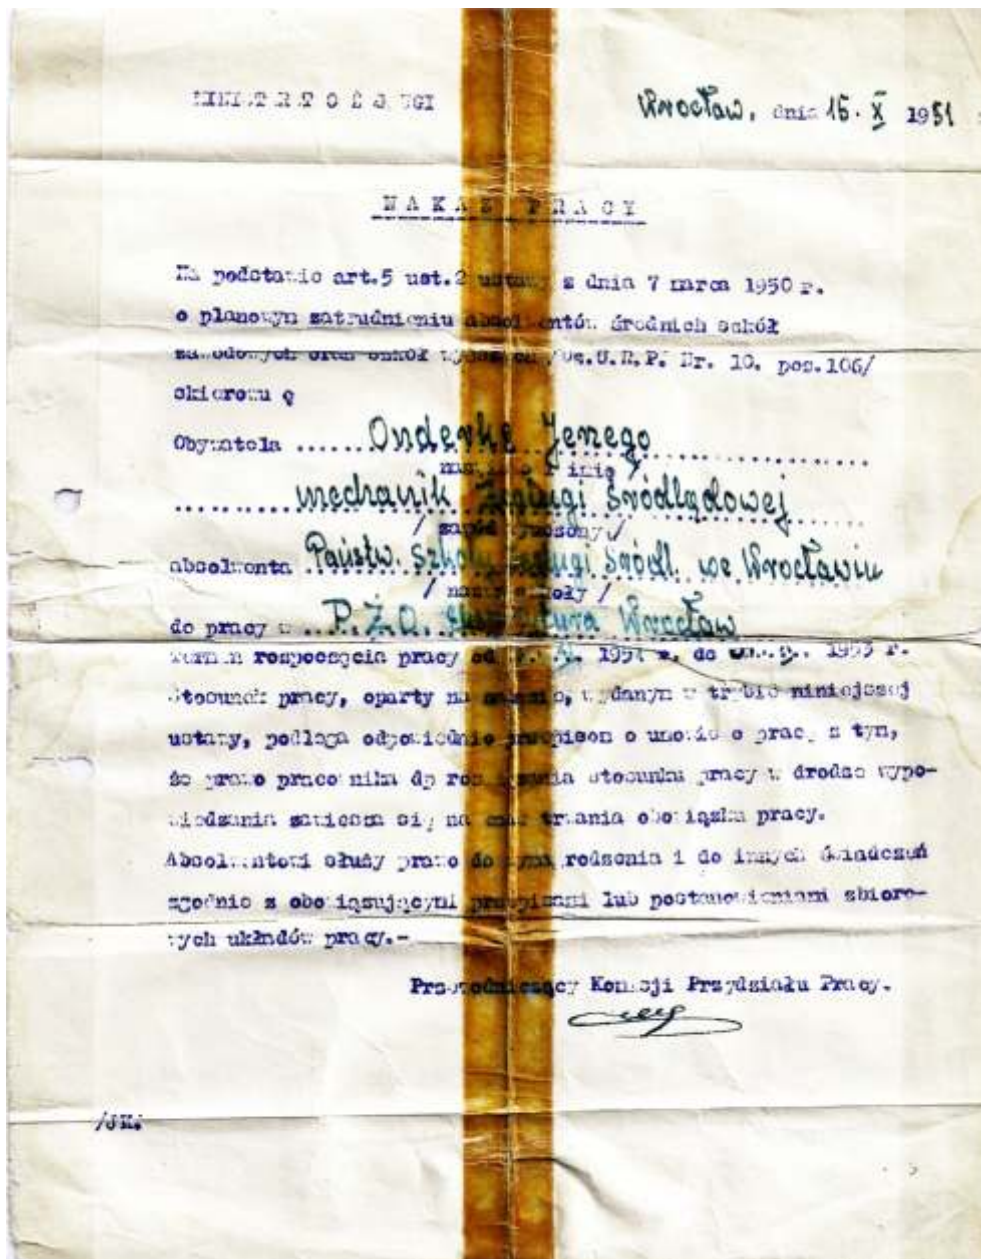 Wrocław, dnia 15. X 1951
NAKAZ PRACY
Na podstawie art.5 ust.2 ustawy z dnia 7 marca 1950 r.
o planowym zatrudnieniu absolwentów średnich szkół
zawodowych oraz szkół wyższych /Dz.U.R.P. Nr. 10. poz.106/
skierowuję
Obywatela ...... Onderkę Jerzego
nazwisko i imię /
mechanik Żeglugi Śródlądowej
/ zawód wyuczony /
absolwenta Państw. Szkoły Żeglugi Śródl. we Wrocławiu
/ nazwa szkoły /
do pracy w ... P.Ż.O. Ekspozytura Wrocław
Termin rozpoczęcia pracy od 1951 r. do 1953 r.
Stosunek pracy, oparty na nakazie, wydanym w trybie niniejszej
ustawy, podlega odpowiednio przepisom o umowie o pracę z tym,
że prawo pracownika do rozwiązania stosunku pracy w drodze wypo-
wiedzenia zawiesza się na czas trwania obowiązku pracy.
Absolwentowi służy prawo do wynagrodzenia i do innych świadczeń
zgodnie z obowiązującymi przepisami lub postanowieniami zbioro-
wych układów pracy.-
Przewodniczący Komisji Przydziału Pracy.